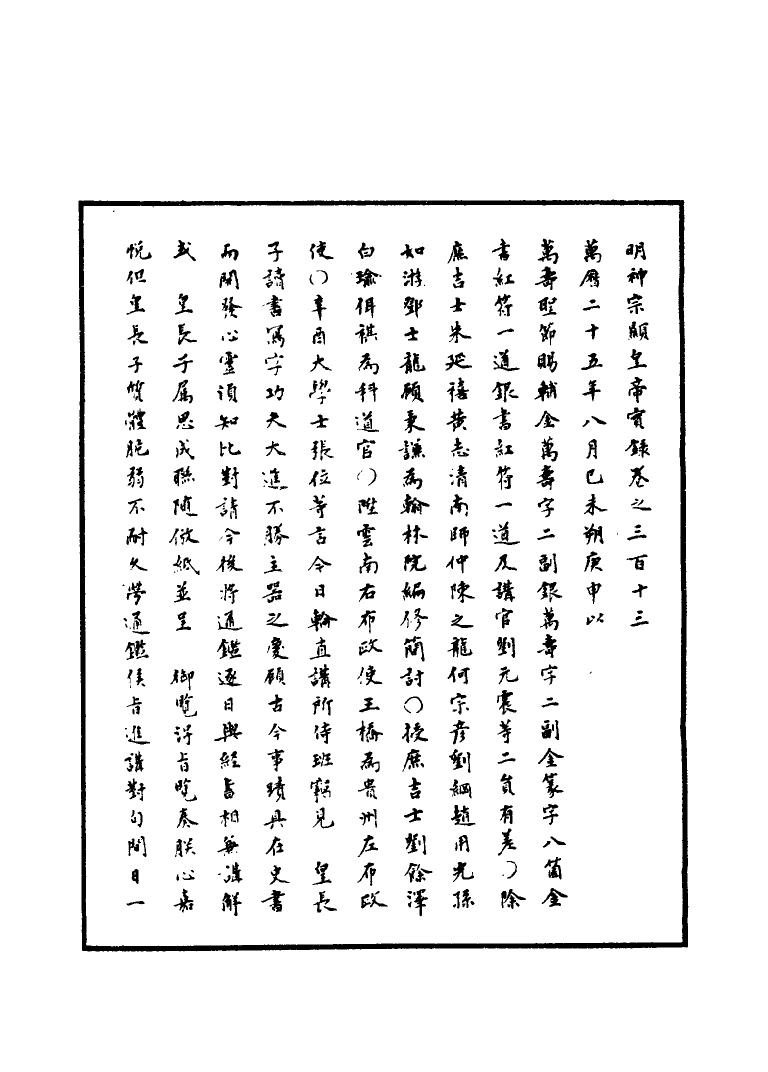 明神宗顯皇帝實錄卷之三百十三
萬曆二十五年八月己未朔庚申以
萬壽聖節賜輔金萬壽字二副銀萬壽字二副金篆字八箇金
書紅符一道銀書紅符一道及講官劉元震等二員有差○除
庶吉士朱延禧黃志清南師仲陳之龍何宗彥劉綱趙用光孫
如游鄧士龍顧秉謙為翰林院編修簡討○授庶吉士劉餘澤
白瑜俱祺為科道官○陞雲南右布政使王橋為貴州左布政
使○辛酉大學士張位等言今日輪直講所侍班竊見 皇長
子讀書寫字功夫大進不勝主器之慶顧古今事蹟具在史書
而開發心靈須知比對請今後將通鑑逐日與經書相兼講解
或 皇長子屬思成聯隨倣紙並呈 御覽得旨覽奏朕心嘉
悅但皇長子質體脆弱不耐久勞通鑑候旨進講對句間日一